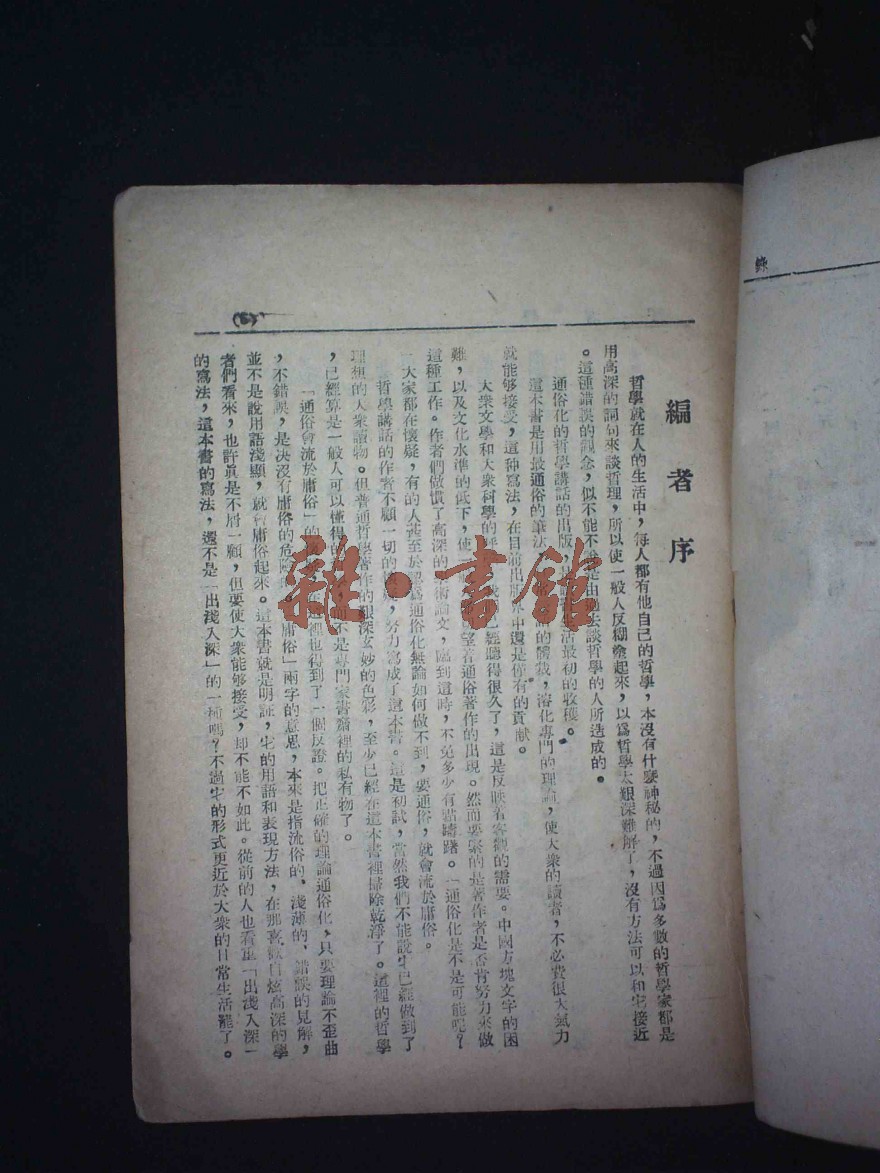 編者序
哲學就在人的生活中，每人都有他自己的哲學，本沒有什麼神秘的，不過因爲多數的哲學家都是
用高深的詞句來談哲理，所以使一般人反糊塗起來，以爲哲學太艱深難解了，沒有方法可以和它接近
。這種錯誤的觀念，似不能不說是由過去談哲學的人所造成的。
通俗化的哲學講話的出版，生活最初的收穫。
這本書是用最通俗的筆法，的體裁，溶化專門的理論，使大衆的讀者，不必費很大氣力
就能够接受，這种寫法，在目前出版界中還是僅有的貢獻。
大衆文學和大衆科學的經聽得很久了，這是反映着客觀的需要。中國方塊文字的困
難，以及文化水準的低下，使望着通俗著作的出現。然而要緊的是著作者是否肯努力來做
這種工作。作者們做慣了高深的術論文，臨到這時，不免多少有點躊躇。「通俗化是不是可能呢？
」大家都在懷疑，有的人甚至於認爲通俗化無論如何做不到，要通俗，就會流於庸俗。
哲學講話的作者不顧一切的，努力寫成了這本書。這是初試，當然我們不能說它已經做到了
理想的大衆讀物。但普通哲學著作的艱深玄妙的色彩，至少已經在這本書裡掃除乾淨了。這裡的哲學
，已經算是一般人可以懂得的，而不是專門家書齋裡的私有物了。
「通俗會流於庸俗」的這裡也得到了一個反證。把正確的理論通俗化，只要理論不歪曲
，不錯誤，是決沒有庸俗的危險。庸俗」兩字的意思，本來是指流俗的、淺薄的、錯誤的見解，
並不是說用語淺顯，就會庸俗起來。這本書就是明証，它的用語和表現方法，在那喜歡自炫高深的學
者們看來，也許眞是不屑一顧，但要使大衆能够接受，却不能不如此。從前的人也看重「出淺入深」
的寫法，這本書的寫法，還不是「出淺入深」的一種嗎？不過它的形式更近於大衆的日常生活罷了。
錄
雜·書館